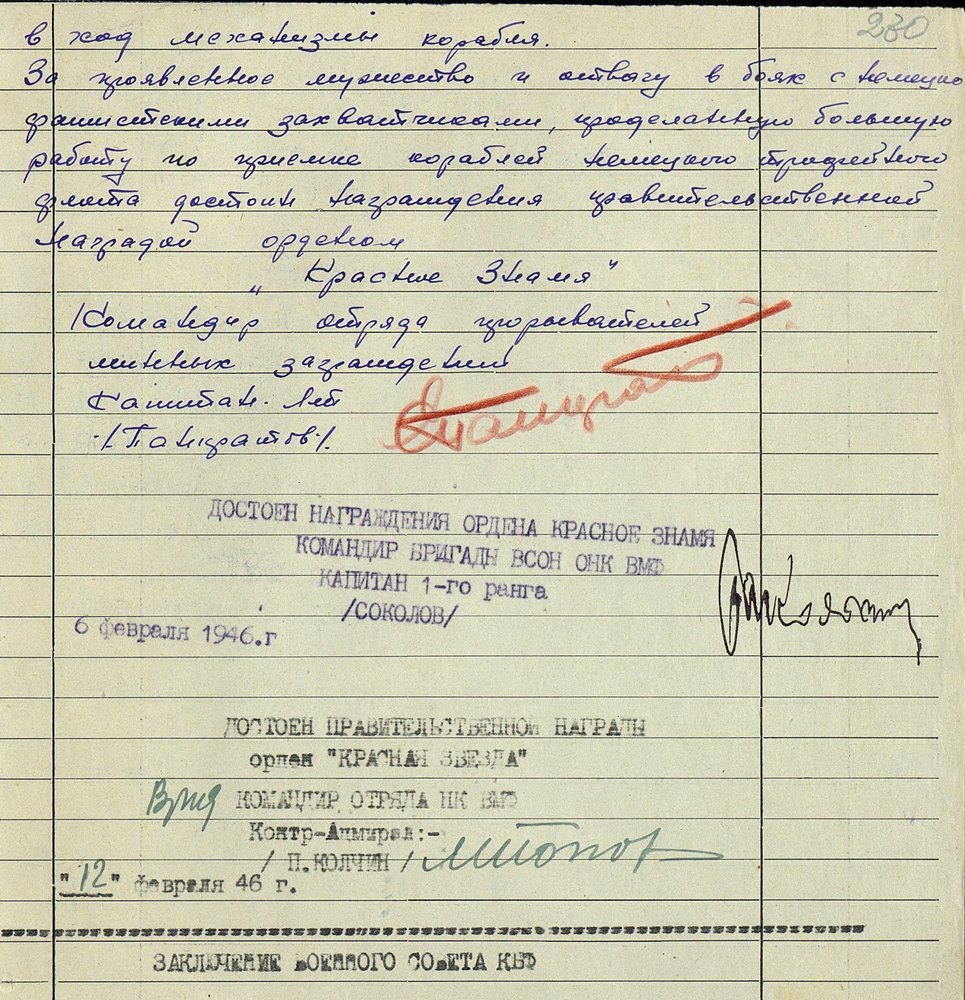 230
в ход механизмы корабля.
За проявленное мужество и отвагу в боях с немецко
фашистскими захватчиками, проделанную большую
работу по приемке кораблей немецкого трофейного
флота достоин награждения правительственной
наградой орденом
„Красное Знамя"
Командир отряда прорывателей
минных заграждений
Капитан-лт
/Панкратов/.
ДОСТОЕН НАГРАЖДЕНИЯ ОРДЕНА КРАСНОЕ ЗНАМЯ
КОМАНДИР БРИГАДЫ ВСОН ОНК ВМФ
КАПИТАН 1-го ранга
/СОКОЛОВ/
6 февраля 1946.г
ДОСТОЕН ПРАВИТЕЛЬСТВЕННОЙ НАГРАДЫ
орден "КРАСНАЯ ЗВЕЗДА"
Врид КОМАНДИР ОТРЯДА НК ВМФ
Контр-Адмирал:-
/ П.КОЛЧИН /
"12" февраля 46 г.
ЗАКЛЮЧЕНИЕ ВОЕННОГО СОВЕТА КБФ